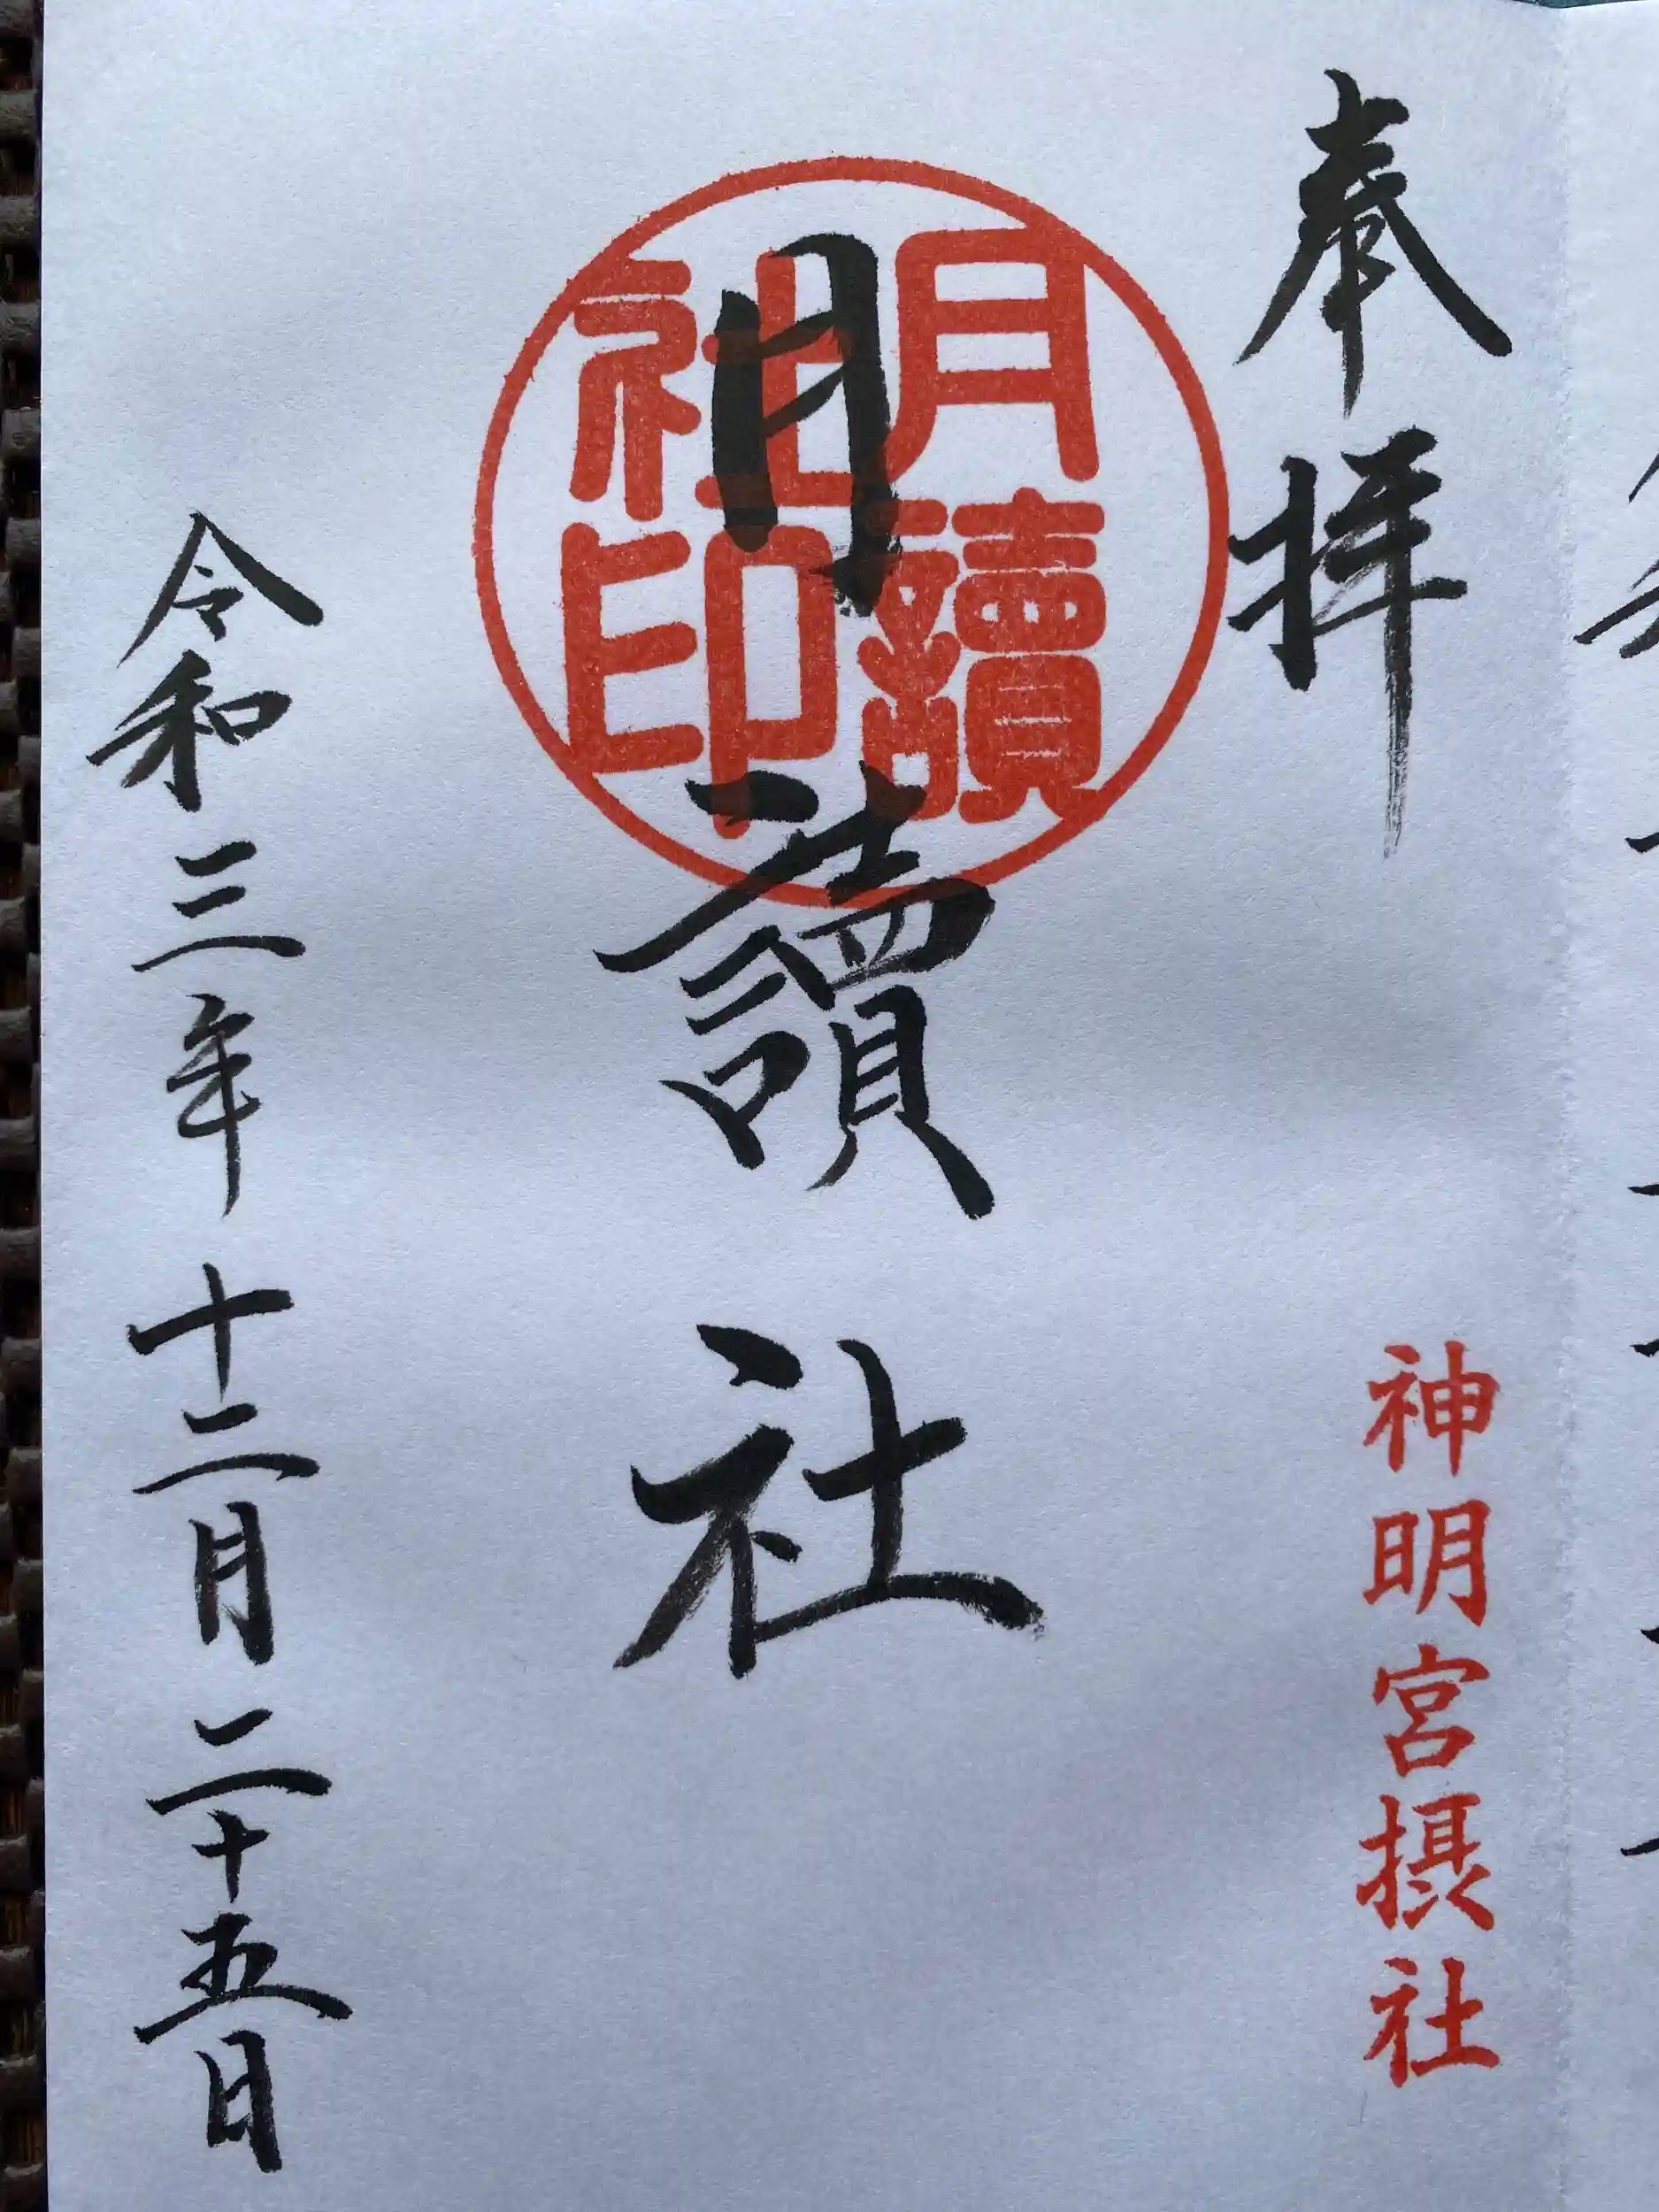 奉拝
神明宮摂社
月讀社印
月讀社
令和三年十二月二十五日